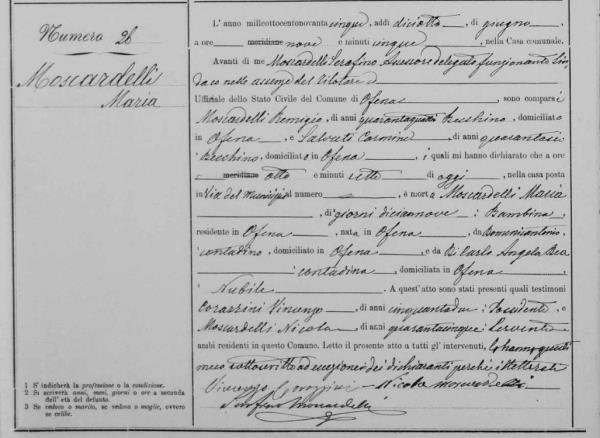 Numero 28
Moscardelli
Maria
L' anno milleottocentonovantacinque, addì diciotto, di giugno,
a ore meridiane nove e minuti cinque, nella Casa comunale.
Avanti di me Moscardelli Serafino Assessore delegato funzionante Sin-
daco nelle assenze del titolare
Uffiziale dello Stato Civile del Comune di Ofena, sono comparsi
Moscardelli Remigio, di anni Becchino, domiciliato
in Ofena, e Salvati Carmine, di anni quarantasei
Becchino, domiciliato in Ofena, i quali mi hanno dichiarato che a ore
meridiane otto e minuti sette di oggi, nella casa posta
in Via del Municipio al numero, è morta Moscardelli Maria
, di giorni diciannove : Bambina
residente in Ofena, nata in Ofena, da Domenicantonio
: contadino, domiciliato in Ofena, e da Di Carlo Angela Rea
: contadina, domiciliata in Ofena,
Nubile. A quest'atto sono stati presenti quali testimoni
Corazzini Vincenzo, di anni cinquantadue : Possidente e
Moscardelli Nicola, di anni quarantacinque : Servente
ambi residenti in questo Comune. Letto il presente atto a tutti gl' intervenuti, lo hanno questi
meco sottoscritto ad eccezione dei dichiaranti perchè illetterati
Vincenzo Corazzini - Nicola Moscardelli
Serafino Moscardelli
1 S' indicherà la professione o la condizione.
2 Si scriverà anni, mesi, giorni o ore a seconda
dell' età del defunto.
3 Se vedovo o marito, se vedova o moglie, ovvero
se celibe.